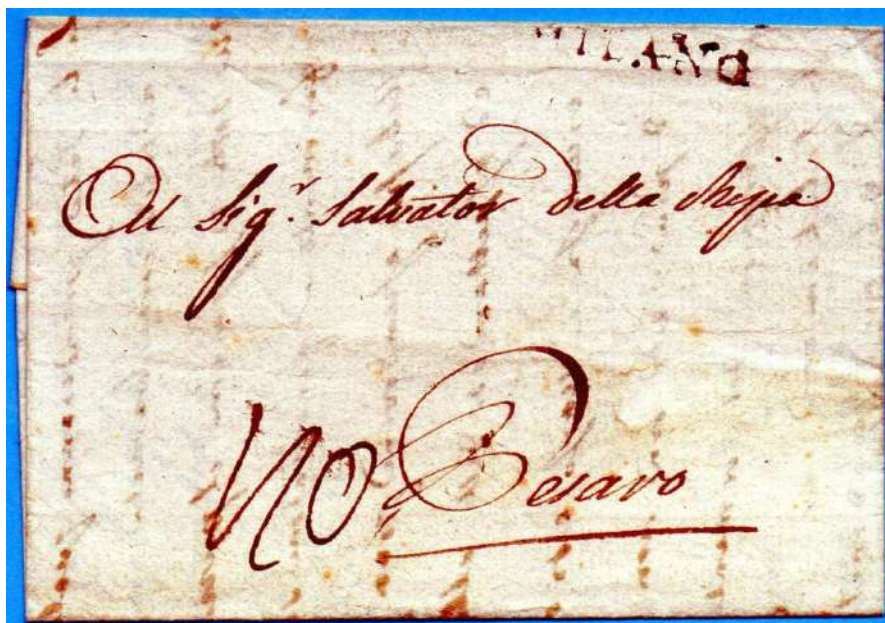 MILANO
Al Sig.r Salvator della Ripa
10 Pesaro